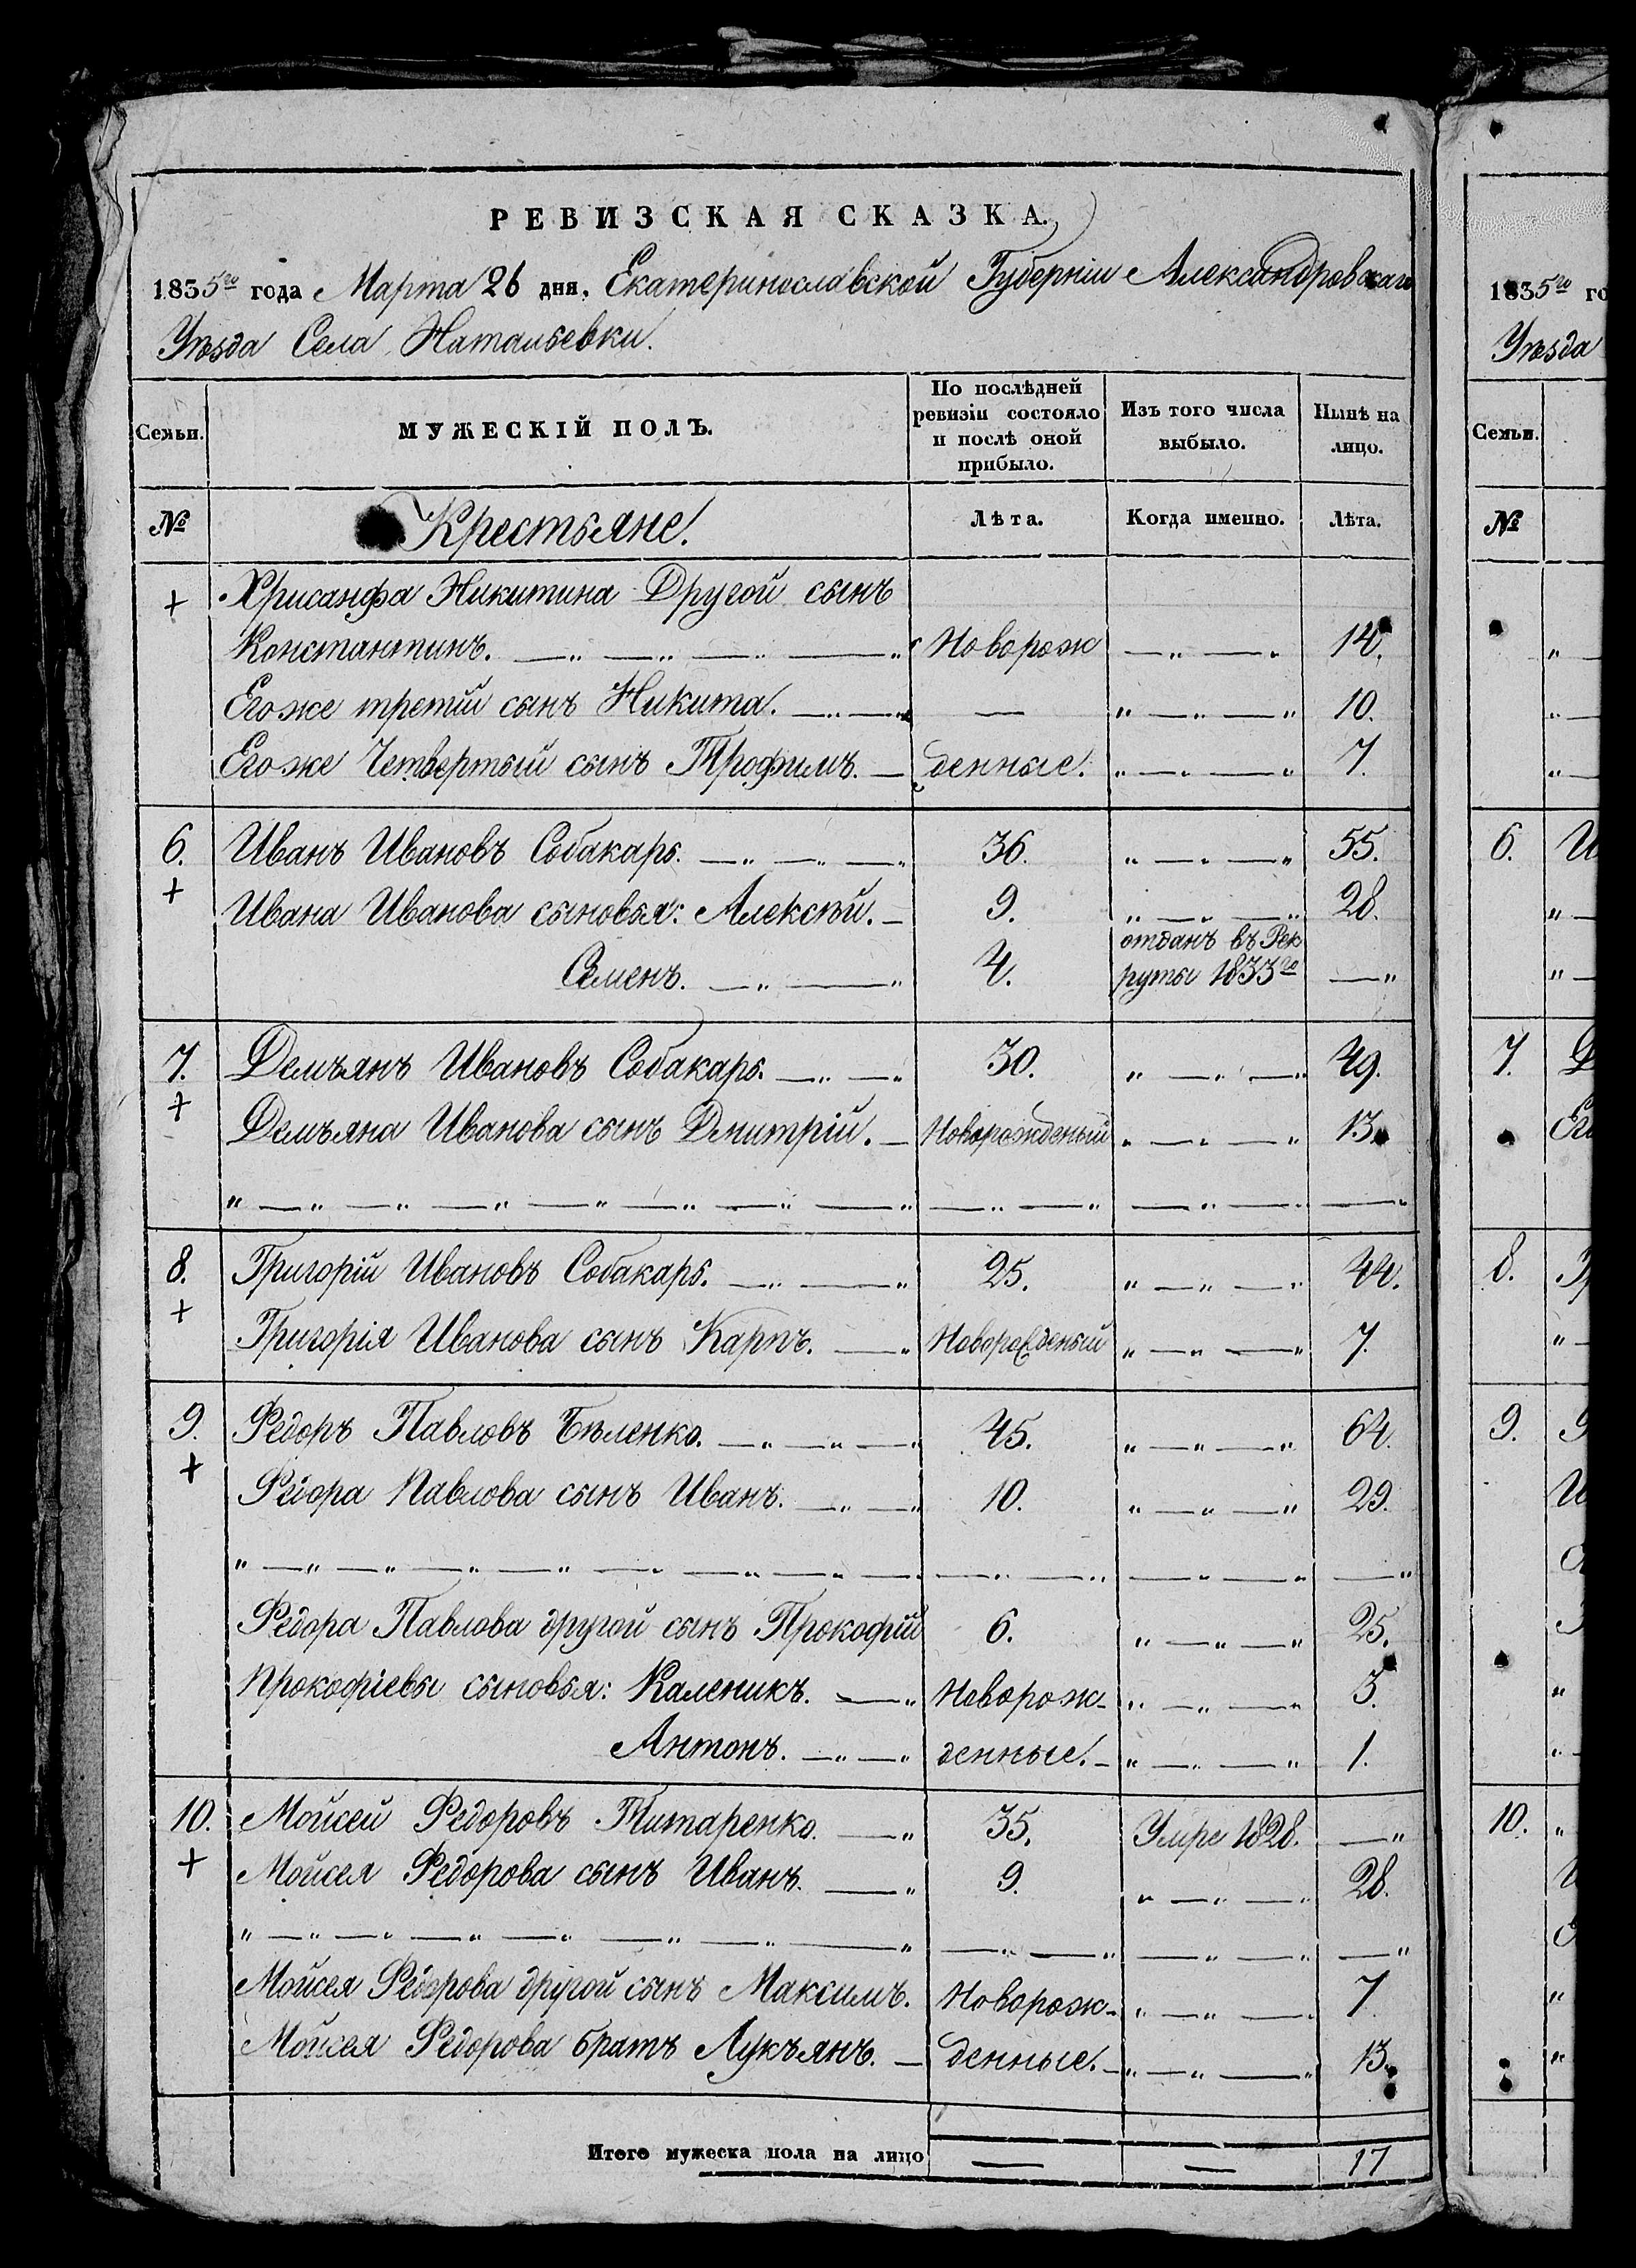 РЕВИЗСКАЯ СКАЗКА.
1835го года Марта 26 дня, Екатеринославской Губерніи Александровскаго
Уѣзда Села Натальевки.
Семьи.
МУЖЕСКІЙ ПОЛЪ.
По послѣдней ревизіи состояло и послѣ оной прибыло.
Изъ того числа выбыло.
Нынѣ на лицо.
№ Крестьяне. Лѣта. Когда именно. Лѣта.
Хрисанфа Никитина Другой сынъ
Константинъ. Новорож 14.
Его же третій сынъ Никита. — 10.
Его же Четвертый сынъ Трофимъ. — денные. 7.
6. Иванъ Ивановъ Собакарь. 36. 55.
+ Ивана Иванова сыновья: Алексѣй. — 9. 28.
Семенъ. 4. отданъ въ Рек
руты 1833го
7. Демъянъ Ивановъ Собакарь. 30. 49.
+ Демъяна Иванова сынъ Дмитрій. — Новорожденый 13.
8. Григорій Ивановъ Собакарь. 25. 44.
+ Григорія Иванова сынъ Карпъ. 7.
9. Федоръ Павловъ Бѣленко. 45. 64.
+ Федора Павлова сынъ Иванъ. 10. 29.
Федора Павлова другой сынъ Прокофій 6. 25.
Прокофіевы сыновья: Каленикъ. Новорож- 3.
Антонъ. денные. 1.
10. Мойсей Федоровъ Титаренко. 35. Умре 1828.
+ Мойсея Федорова сынъ Иванъ. 9. 28.
Мойсея Федорова другой сынъ Максимъ. Новорож- 7
Мойсея Федорова братъ Лукъянъ. — денные. 13.
Итого мужеска пола на лицо — — 17
1835го го
Уѣзда
Семьи.
№
6. И
7. Д
8.
9.
10.